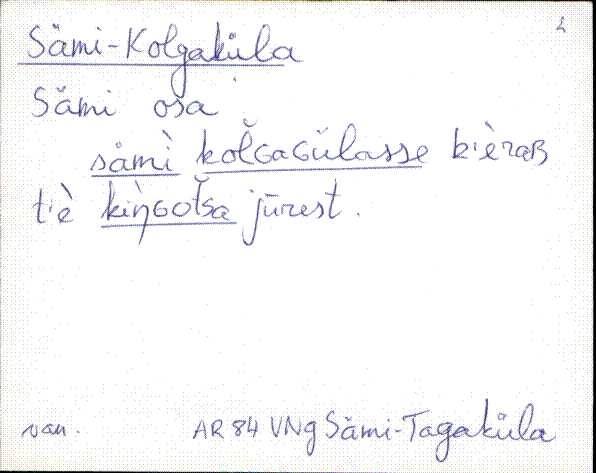 2
Sämi-Kolgaküla
Sämi osa
sämì kolGaGülasse kièraB
tiè kiŋGotsa jūrest.
van. AR 84 VNg Sämi-Tagaküla